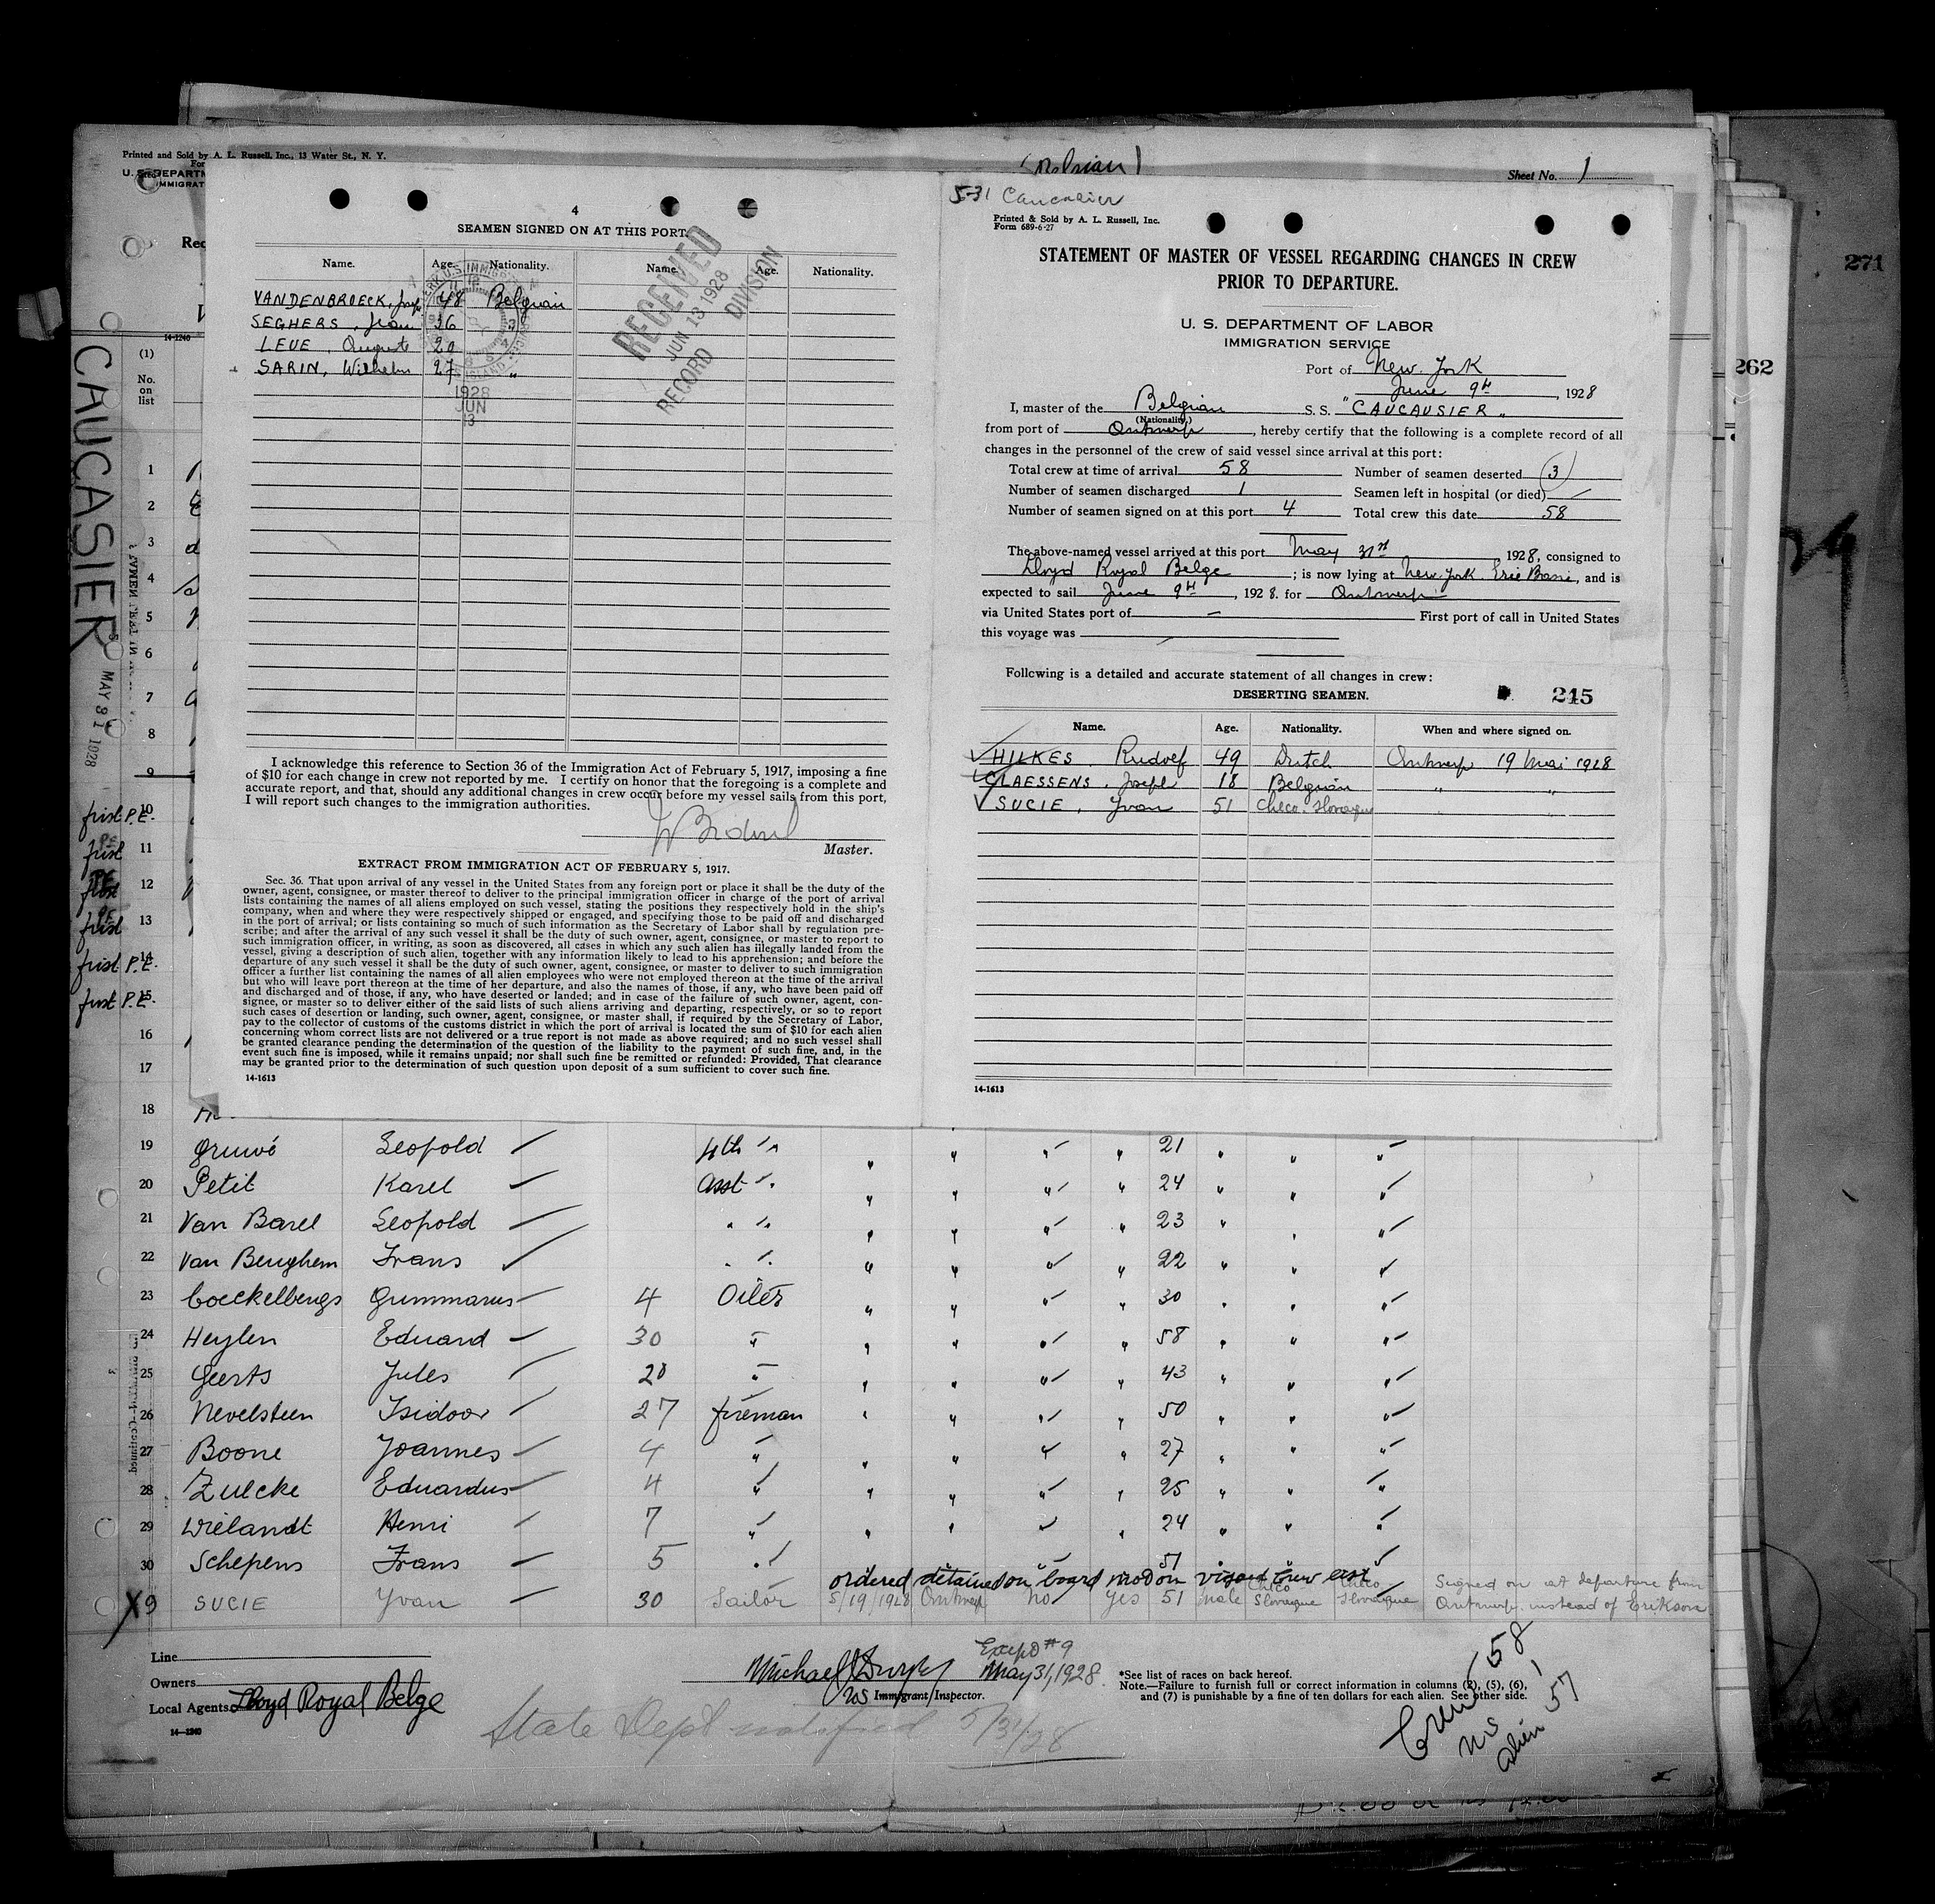 Printed and Sold by A. L. Russell, Inc., 13 Water St., N. Y.
For
U. S. DEPARTM
IMMIGRAT
Sheet No. 1
Rec
14-1240
(1)
No.
on
list
CAUCASIER
MAY 31 1928
271
262
4
SEAMEN SIGNED ON AT THIS PORT.
Name. Age. Nationality. Name. Age. Nationality.
VANDENBROECK, Josef 48 Belgian
SEGHERS, Jean 36 "
LEUE, Auguste 20 "
SARIN, Wilhelm 27 "
1928
JUN
13
RECEIVED
JUN 13 1928
RECORD DIVISION
I acknowledge this reference to Section 36 of the Immigration Act of February 5, 1917, imposing a fine
of $10 for each change in crew not reported by me. I certify on honor that the foregoing is a complete and
accurate report, and that, should any additional changes in crew occur before my vessel sails from this port,
I will report such changes to the immigration authorities.
Master.
EXTRACT FROM IMMIGRATION ACT OF FEBRUARY 5, 1917.
Sec. 36. That upon arrival of any vessel in the United States from any foreign port or place it shall be the duty of the
owner, agent, consignee, or master thereof to deliver to the principal immigration officer in charge of the port of arrival
lists containing the names of all aliens employed on such vessel, stating the positions they respectively hold in the ship's
company, when and where they were respectively shipped or engaged, and specifying those to be paid off and discharged
in the port of arrival; or lists containing so much of such information as the Secretary of Labor shall by regulation pre-
scribe; and after the arrival of any such vessel it shall be the duty of such owner, agent, consignee, or master to report to
such immigration officer, in writing, as soon as discovered, all cases in which any such alien has illegally landed from the
vessel, giving a description of such alien, together with any information likely to lead to his apprehension; and before the
departure of any such vessel it shall be the duty of such owner, agent, consignee, or master to deliver to such immigration
officer a further list containing the names of all alien employees who were not employed thereon at the time of the arrival
but who will leave port thereon at the time of her departure, and also the names of those, if any, who have been paid off
and discharged and of those, if any, who have deserted or landed; and in case of the failure of such owner, agent, con-
signee, or master so to deliver either of the said lists of such aliens arriving and departing, respectively, or so to report
such cases of desertion or landing, such owner, agent, consignee, or master shall, if required by the Secretary of Labor,
pay to the collector of customs of the customs district in which the port of arrival is located the sum of $10 for each alien
concerning whom correct lists are not delivered or a true report is not made as above required; and no such vessel shall
be granted clearance pending the determination of the question of the liability to the payment of such fine, and, in the
event such fine is imposed, while it remains unpaid; nor shall such fine be remitted or refunded: Provided, That clearance
may be granted prior to the determination of such question upon deposit of a sum sufficient to cover such fine.
14-1613
5-31 Caucasier
Printed & Sold by A. L. Russell, Inc.
Form 689-6-27
STATEMENT OF MASTER OF VESSEL REGARDING CHANGES IN CREW
PRIOR TO DEPARTURE.
U. S. DEPARTMENT OF LABOR
IMMIGRATION SERVICE
Port of New York
June 9th, 1928
I, master of the Belgian S. S. "CAUCAUSIER"
(Nationality)
from port of Antwerp, hereby certify that the following is a complete record of all
changes in the personnel of the crew of said vessel since arrival at this port:
Total crew at time of arrival 58 Number of seamen deserted (3)
Number of seamen discharged 1 Seamen left in hospital (or died) —
Number of seamen signed on at this port 4 Total crew this date 58
The above-named vessel arrived at this port May 31st, 1928, consigned to
Lloyd Royal Belge; is now lying at New York Erie Basin, and is
expected to sail June 9th, 1928. for Antwerp
via United States port of — First port of call in United States
this voyage was —
Following is a detailed and accurate statement of all changes in crew:
DESERTING SEAMEN.
245
Name. Age. Nationality. When and where signed on.
HILKES Rudolf 49 Dutch Antwerp 19 Mai 1928
CLAESSENS, Joseph 18 Belgian " "
SUCIE, Yvan 51 Checo. Slovaque " "
14-1613
1
2
3
4
5
6
7
8
9
first P.E. 10
first 11
first 12
first 13
first P.E. 14
first P.E. 15
16
17
18
19 Gruwé Leopold 4th " " " " " 21 " " "
20 Petit Karel Asst " " " " " 24 " " "
21 Van Barel Leopold " " " " " " 23 " " "
22 Van Beughem Frans " " " " " " 22 " " "
23 Coeckelbergs Gummarus 4 Oiler " " " " 30 " " "
24 Heylen Eduard 30 " " " " " 58 " " "
25 Geerts Jules 20 " " " " " 43 " " "
26 Nevelsteen Isidoor 27 fireman " " " " 50 " " "
27 Boone Joannes 4 " " " " " 27 " " "
28 Zulcke Eduardus 4 " " " " " 25 " " "
29 Wielandt Henri 7 " " " " " 24 " " "
30 Schepens Frans 5 " " " " " 51 " " "
ordered detained on board not on visaed crew list
X9 SUCIE Yvan 30 Sailor 5/19/1928 Antwerp No Yes 51 male Checo Slovaque Checo Slovaque Signed on at departure from
Antwerp instead of Erikson
Line
Owners
Local Agents Lloyd Royal Belge
14-1240
Except #9
May 31, 1928.
US Immigrant Inspector.
*See list of races on back hereof.
Note.—Failure to furnish full or correct information in columns (2), (5), (6),
and (7) is punishable by a fine of ten dollars for each alien. See other side.
State Dept notified 5/31/28
Crew 58
US 1
Alien 57